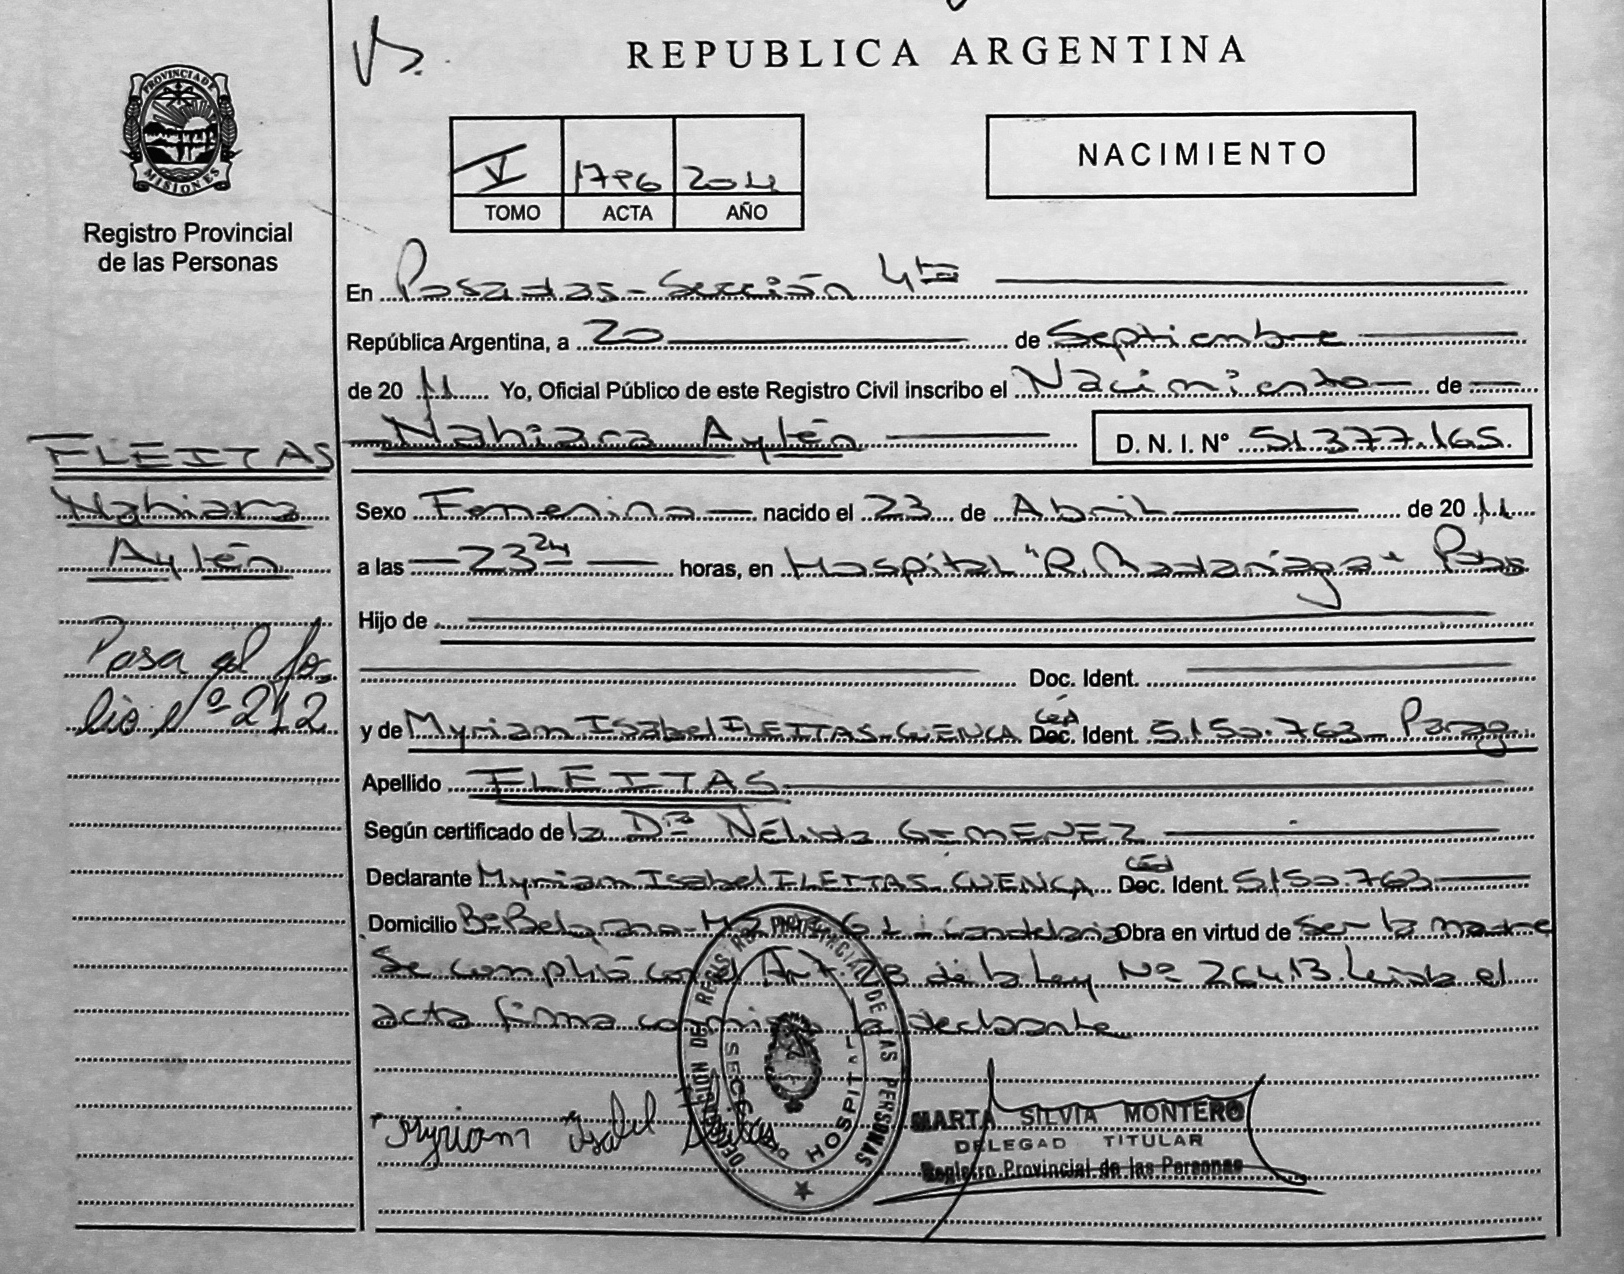 REPUBLICA ARGENTINA
PROVINCIA DE
MISIONES
Registro Provincial
de las Personas
V 1796 2011
TOMO ACTA AÑO
NACIMIENTO
En Posadas - Sección 4ta
República Argentina, a 20 de Septiembre
de 20 11 Yo, Oficial Público de este Registro Civil inscribo el Nacimiento de
Nahiara Aylén D. N. I. Nº 51.377.165.
FLEITAS
Nahiara
Aylén
Pasa al fo-
lio Nº 212
Sexo Femenina nacido el 23 de Abril de 20 11
a las 23 24 horas, en Hospital "R. Madariaga" Pdas
Hijo de
Doc. Ident.
y de Myriam Isabel FLEITAS CUENCA Céd Doc. Ident. 5.150.763 Parag
Apellido FLEITAS
Según certificado de la Dra Nélida GIMENEZ
Declarante Myriam Isabel FLEITAS CUENCA Céd Doc. Ident. 5.150.763
Domicilio Bº Belgrano - Candelaria Obra en virtud de Ser la madre
Se cumplió con el Art. de la Ley Nº 26413. Leída el
acta firma conmigo la declarante
Myriam Isabel Fleitas
MARTA SILVIA MONTERO
DELEGAD TITULAR
Registro Provincial de las Personas
DE LAS PERSONAS
HOSPITAL